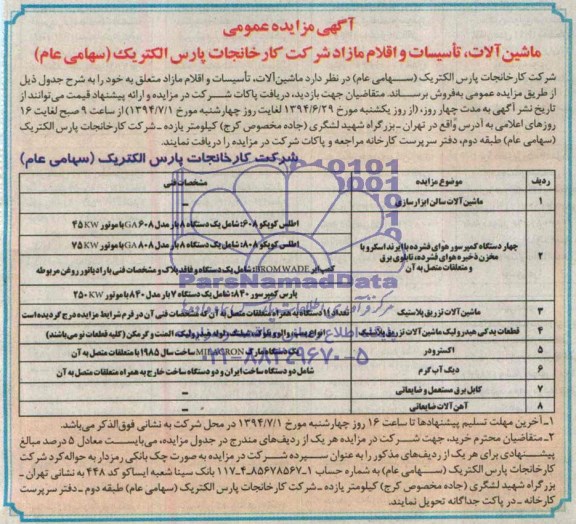 آگهی مزایده عمومی
ماشین آلات، تأسیسات و اقلام مازاد شرکت کارخانجات پارس الکتریک (سهامی عام)
شرکت کارخانجات پارس الکتریک (سـهامی عام) در نظر دارد ماشین‌آلات، تأسیسات و اقلام مازاد متعلق به خود را به شرح جدول ذیل
از طریق مزایده عمومی به‌فروش برساند. متقاضیان جهت بازدید، دریافت پاکات شرکت در مزایده و ارائه پیشنهاد قیمت می‌توانند از
تاریخ نشر آگهی به مدت چهار روز، (از روز یکشنبه مورخ ۱۳۹۴/۶/۲۹ لغایت روز چهارشنبه مورخ ۱۳۹۴/۷/۱) از ساعت ۹ صبح لغایت ۱۶
روزهای اعلامی به آدرس واقع در تهران ـ بزرگراه شهید لشگری (جاده مخصوص کرج) کیلومتر یازده ـ شرکت کارخانجات پارس الکتریک
(سهامی عام) طبقه دوم، دفتر سرپرست کارخانه مراجعه و پاکات شرکت در مزایده را دریافت نمایند.
شرکت کارخانجات پارس الکتریک (سهامی عام)
ردیف موضوع مزایده مشخصات فنی
۱ ماشین آلات سالن ابزارسازی –
۲ چهار دستگاه کمپرسور هوای فشرده با ایرند اسکرو با مخزن ذخیره هوای فشرده، تابلوی برق و متعلقات متصل به آن
اطلس کوپکو ۶۰۸: شامل یک دستگاه ۸ بار مدل GA۶۰۸ با موتور ۴۵KW
اطلس کوپکو ۸۰۸: شامل یک دستگاه ۸ بار مدل GA۸۰۸ با موتور ۷۵KW
کمپ‌ایر BROMWADE: شامل یک دستگاه و فاقد پلاک و مشخصات فنی با رادیاتور روغن مربوطه
پارس کمپرسور ۸۴۰: شامل یک دستگاه ۷ بار مدل ۸۴۰ با موتور ۲۵۰KW
۳ ماشین آلات تزریق پلاستیک تعداد ۱۱ دستگاه به همراه متعلقات متصل به آن که مشخصات فنی آن در فرم شرایط مزایده درج گردیده است
۴ قطعات یدکی هیدرولیک ماشین آلات تزریق پلاستیک انواع پمپ و والو، هیدرولیک، المنت و گرمکن (کلیه قطعات نو می‌باشند)
۵ اکسترودر یک دستگاه مارک MILACRON ساخت سال ۱۹۸۵ با متعلقات متصل به آن
۶ دیگ آب گرم شامل دو دستگاه ساخت ایران و دو دستگاه ساخت خارج به همراه متعلقات متصل به آن
۷ کابل برق مستعمل و ضایعاتی –
۸ آهن آلات ضایعاتی –
۱ـ آخرین مهلت تسلیم پیشنهادها تا ساعت ۱۶ روز چهارشنبه مورخ ۱۳۹۴/۷/۱ در محل شرکت به نشانی فوق‌الذکر می‌باشد.
۲ـ متقاضیان محترم خرید، جهت شرکت در مزایده هر یک از ردیف‌های مندرج در جدول مزایده، می‌بایست معادل ۵ درصد مبالغ
پیشنهادی برای هر یک از ردیف‌های مذکور را به عنوان سپرده شرکت در مزایده به صورت چک بانکی رمزدار به حواله‌کرد شرکت
کارخانجات پارس الکتریک (سـهامی عام) به شماره حساب ۱ـ۸۵۶۷۸۵۶۷ـ۴ـ۱۱۷ بانک سینا شعبه ایساکو کد ۴۴۸ به نشانی تهران ـ
بزرگراه شهید لشگری (جاده مخصوص کرج) کیلومتر یازده ـ شرکت کارخانجات پارس الکتریک (سهامی عام) طبقه دوم ـ دفتر سرپرست
کارخانه ـ در پاکت جداگانه تحویل نمایند.
ParsNamadData
۰۲۱-۸۸۳۴۹۶۷۰-۵